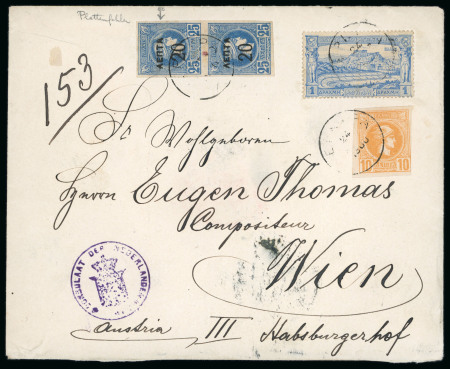 Plattenfehler
ΛΕΠΤΑ 20 25
ΛΕΠΤΑ 20 25
1 ΔΡΑΧΜΗ 1
153/
10 10
Sr Wohlgeboren
Herrn Eugen Thomas
Compositeur
Wien
CONSULAAT DER NEDERLANDEN
Austria III Habsburgerhof